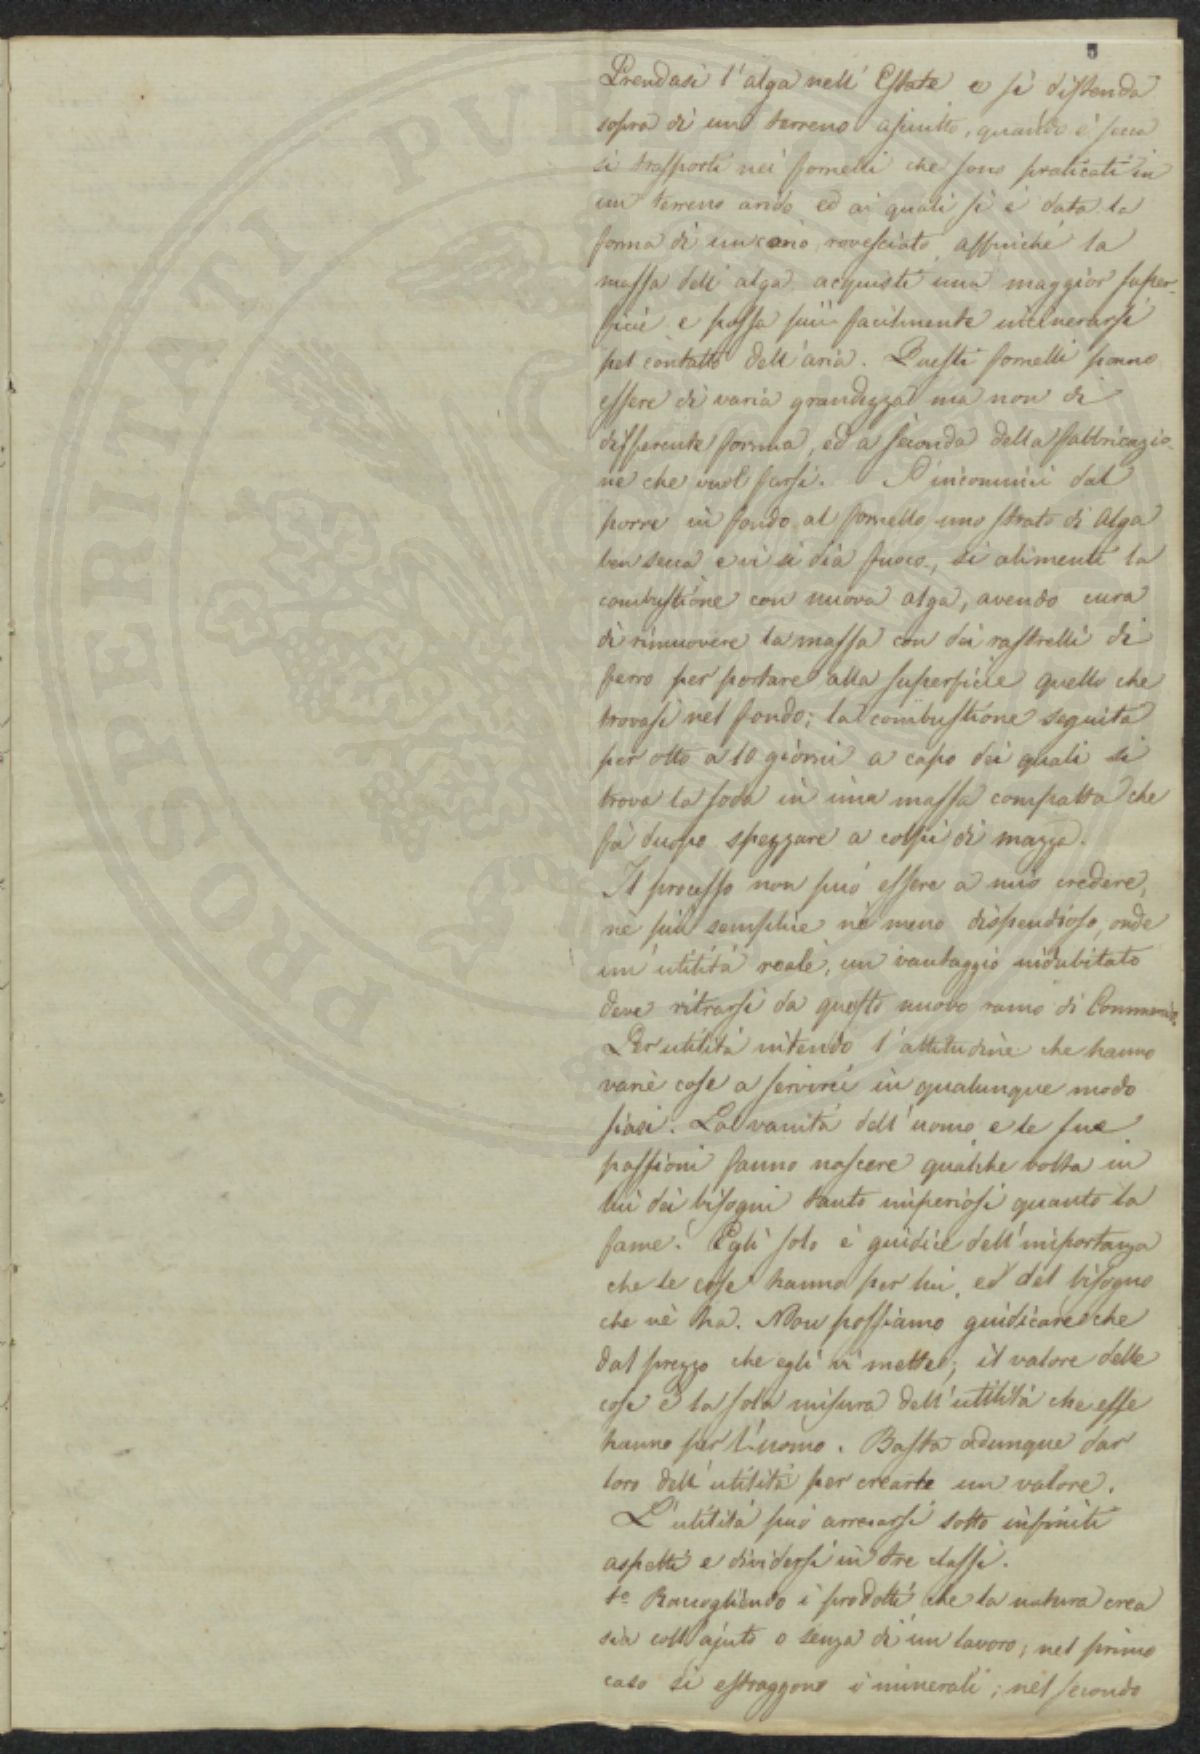 5
Prendasi l'alga nell'Estate e si distenda
sopra di un terreno asciutto, quando è secca
si trasporti nei fornelli che sono praticati in
un terreno arido ed ai quali si è data la
forma di un cono rovesciato, affinché la
massa dell'alga acquisti una maggior super-
ficie e possa più facilmente incinerarsi
pel contatto dell'aria. Questi fornelli ponno
essere di varia grandezza ma non di
differente forma, ed a seconda della fabbricazio-
ne che vuol farsi. S'incominci dal
porre in fondo al fornello uno strato di Alga
ben secca e vi si dia fuoco, si alimenti la
combustione con nuova alga, avendo cura
di rimuovere la massa con dei rastrelli di
ferro per portare alla superficie quello che
trovasi nel fondo; la combustione seguita
per otto a 10 giorni a capo dei quali si
trova la soda in una massa compatta che
fà duopo spezzare a colpi di mazze.
Il processo non può essere a mio credere,
nè più semplice nè meno dispendioso, onde
un'utilità reale, un vantaggio indubitato
deve ritrarsi da questo nuovo ramo di Commercio.
Per utilità intendo l'attitudine che hanno
varie cose a servirci in qualunque modo
siasi. La vanità dell'uomo e le sue
passioni fanno nascere qualche volta in
lui dei bisogni tanto imperiosi quanto la
fame. Egli solo è giudice dell'importanza
che le cose hanno per lui, ed del bisogno
che ne ha. Non possiamo giudicare che
dal prezzo che egli vi mette; il valore delle
cose è la sola misura dell'utilità che esse
hanno per l'uomo. Basta adunque dar
loro dell'utilità per crearle un valore.
L'utilità può arrecarsi sotto infiniti
aspetti e dividersi in tre classi.
1º Raccogliendo i prodotti che la natura crea
sia coll'ajuto o senza di un lavoro; nel primo
caso si estraggono i minerali; nel secondo
PROSPERITATI PUBLICAE